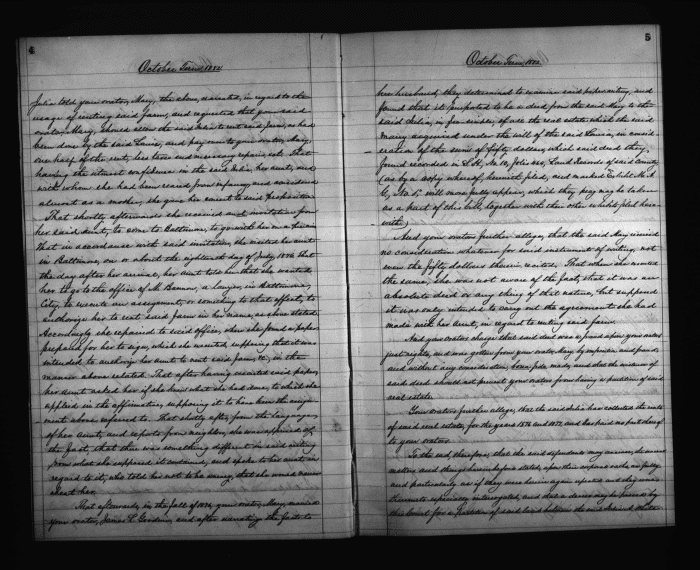 4
October Term, 188
Julia told your oratrix, Mary, the above, narrated, in regard to the
usage of renting said farm, and requested that your said
oratrix, Mary, should allow the said Julia to rent said farm, as had
been done by the said Louisa, and pay over to your oratrix, Mary
one half of the rent, less taxes and necessary repairs, &c. That
having the utmost confidence in the said Julia, her aunt, and
with whom she had been reared from infancy, and considered
almost as a mother, she gave her assent to said proposition
That shortly afterwards she received an invitation from
her said aunt, to come to Baltimore, to go with her on a
That in accordance with said invitation, she visited her aunt
in Baltimore, on or about the eighteenth day of July 1876 that
the day after her arrival, her aunt told her that she wanted
her to go to the office of M. Bannon, a lawyer, in Baltimore
City, to execute an assignment, or something to that effect, to
authorize her to rent said farm in her name, as above stated
Accordingly she repaired to said office, when she found a paper
prepared for her to sign, which she executed supposing that it was
intended to authorize her aunt to rent said farm, &c, in the
manner above related. That after having executed said paper,
her aunt asked her if she knew what she had done, to which she
replied in the affirmative, supposing it to have been the assign-
ment above referred to. That shortly after, from the language
of her aunt, and reports from neighbors, she was apprised of
the fact, that there was something different in said writing
from what she supposed it contained, and spoke to her aunt in
regard to it, who told her not to be uneasy, that she would never
cheat her.
That afterwards, in the fall of 1876, your oratrix, Mary, married
your orator, James L. and after narrating the facts to
5
October Term, 188
her husband, they determined to examine said paper writing, and
found that it purported to be a deed from the said Mary to the
said Julia, in fee simple, of all the real estate which the said
Mary acquired under the will of the said Louisa, in consid-
eration of the sum of fifty dollars, which said deed they
found recorded in S. H., No. 10, folio 456, Land Records of said County
(as by a copy whereof, herewith filed, and marked Exhibit M.
G, No. 1, will more fully appear, which they pray may be taken
as a part of this bill, together with the other exhibits filed here-
with.)
And your orators further allege, that the said Mary received
no consideration whatever for said instrument of writing, not
even the fifty dollars therein recited. That when she executed
the same, she was not aware of the fact, that it was an
absolute deed or any thing of that nature, but supposed
it was only intended to carry out the agreement she had
made with her aunt, in regard to renting said farm.
And your orators charge that said deed was a fraud upon your orators
just rights, and was gotten from your oratrix, Mary, by imposition and fraud,
and without any consideration, bona fide made, and that the existence of
said deed should not prevent your orators from having a partition of said
real estate.
Your orators further allege, that the said Julia has collected the rents
of said real estate, for the years 1876 and 1877, and has paid no part thereof
to your orators.
To the end, therefore, that the said defendants may answer the several
matters and things hereinbefore stated, upon their corporal oaths, as fully
and particularly as if they were herein again repeated and they were
thereunto especially interrogated, and that a decree may be passed by
this Court for a partition of said land between the said